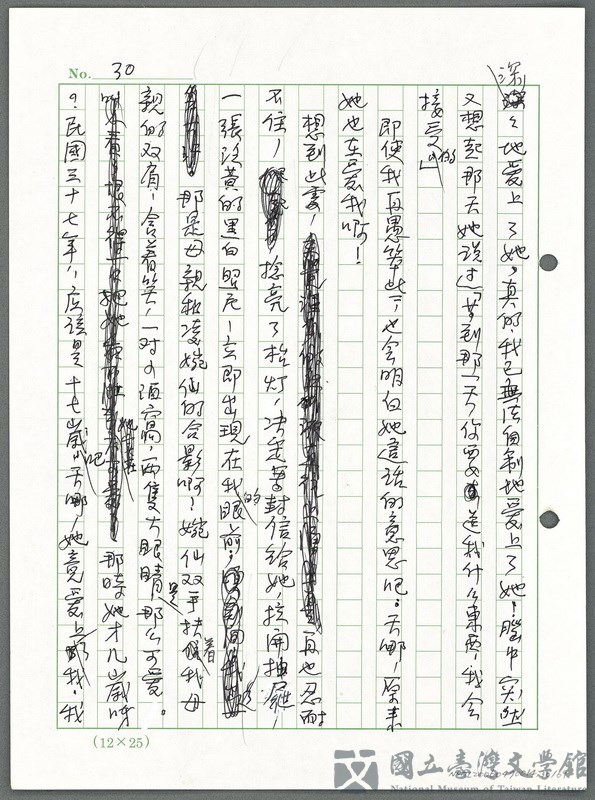 No. 30
深深地愛上了她。真的,我已無法自制地愛上了她!腦中突然
又想起那天她說過「等到那一天你要送我什么東西,我會
接受的」
即使我再愚笨些,也会明白她這話的意思吧。天哪,原来
她也在愛我啊!
想到此處,再也忍耐
不住,捻亮了枱灯,决定寫封信給她,拉開抽屜,
一張泛黃的黑白照片,立即出現在我的眼前,
那是母親和凌婉仙的合影啊!婉仙双手扶着我母
親的双肩,含着笑,一对小酒窩,兩隻大眼睛是那么可愛。
那時她才几歲呀
?民國三十七年,应該是十七歲吧!天哪,她竟愛上了我,我
(12×25)
國立臺灣文學館
National Museum of Taiwan Literature